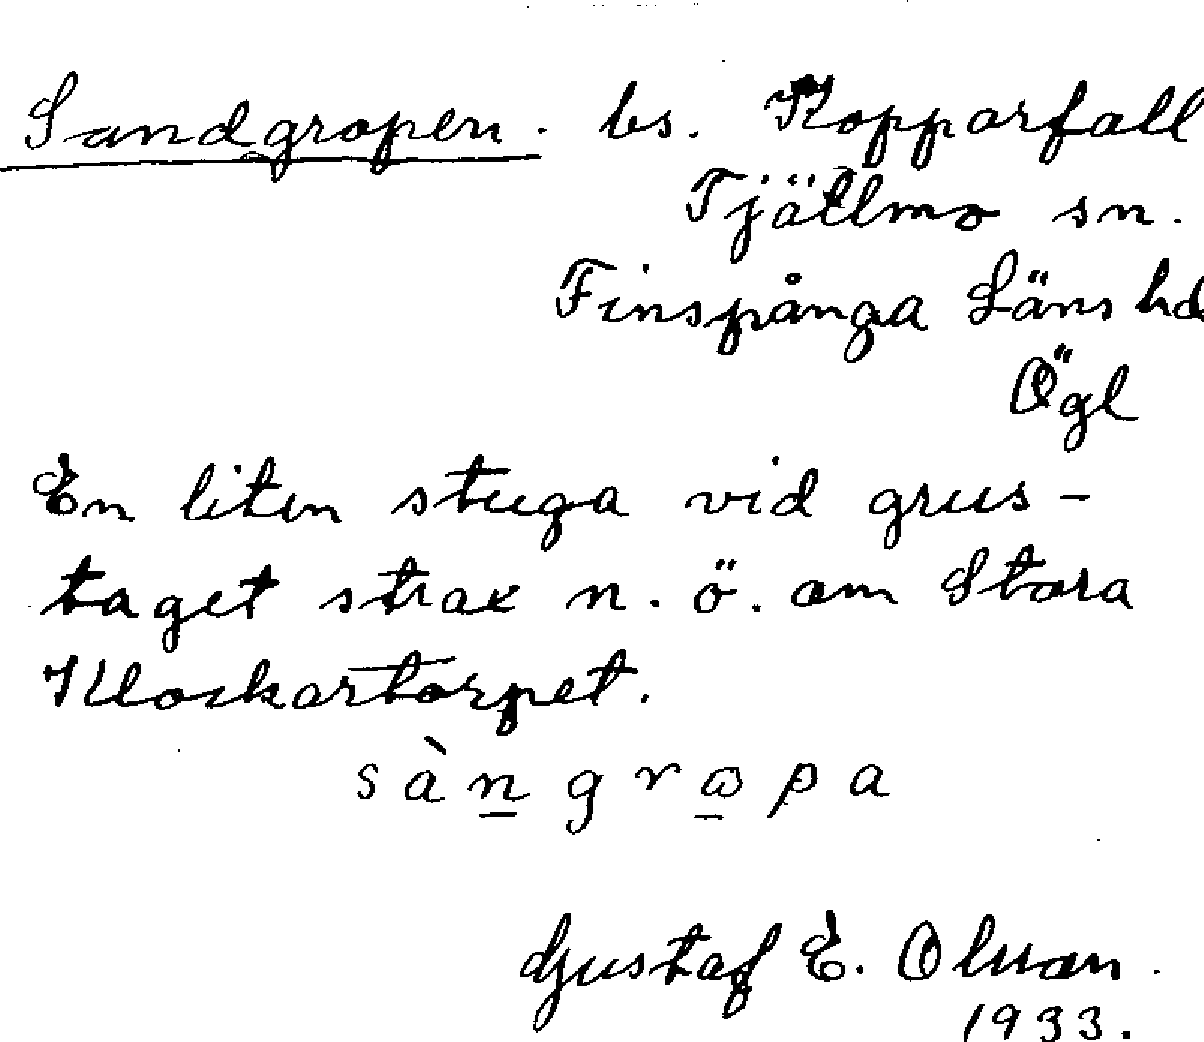 Sandgropen. bs. Kopparfall
Tjällmo sn.
Finspånga Läns hd
Ögl
En liten stuga vid grus-
taget strax n. ö. om Stora
Klockartorpet.
sàngrɷpa
Gustaf E. Olsson.
1933.